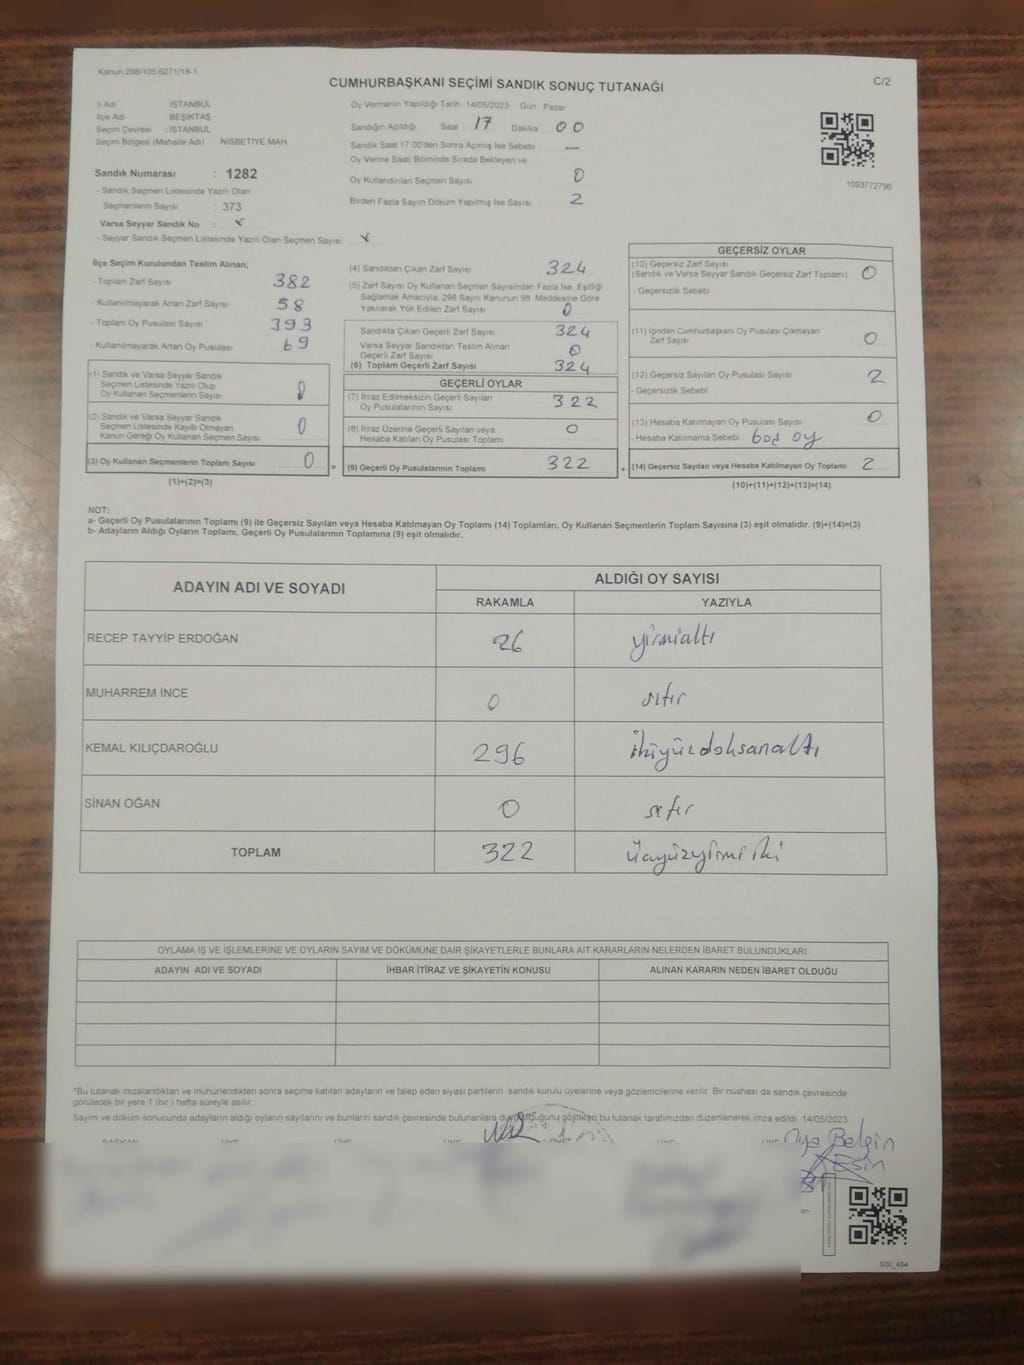 Kanun 298/105.6271/18-1
CUMHURBAŞKANI SEÇİMİ SANDIK SONUÇ TUTANAĞI
C/2
İl Adı İSTANBUL
İlçe Adı BEŞİKTAŞ
Seçim Çevresi : İSTANBUL
Seçim Bölgesi (Mahalle Adı) NİSBETİYE MAH
Sandık Numarası : 1282
- Sandık Seçmen Listesinde Yazılı Olan
Seçmenlerin Sayısı : 373
Varsa Seyyar Sandık No :
- Seyyar Sandık Seçmen Listesinde Yazılı Olan Seçmen Sayısı
Oy Vermenin Yapıldığı Tarih : 14/05/2023 Gün : Pazar
Sandığın Açıldığı Saat 17 Dakika 00
Sandık Saat 17:00'den Sonra Açılmış İse Sebebi —
Oy Verme Saati Bitiminde Sırada Bekleyen ve
Oy Kullandırılan Seçmen Sayısı 0
Birden Fazla Sayım Döküm Yapılmış İse Sayısı 2
1093772796
İlçe Seçim Kurulundan Teslim Alınan;
- Toplam Zarf Sayısı 382
- Kullanılmayarak Artan Zarf Sayısı 58
- Toplam Oy Pusulası Sayısı 393
- Kullanılmayarak Artan Oy Pusulası 69
(1) Sandık ve Varsa Seyyar Sandık
Seçmen Listesinde Yazılı Olup
Oy Kullanan Seçmenlerin Sayısı 0
(2) Sandık ve Varsa Seyyar Sandık
Seçmen Listesinde Kayıtlı Olmayan
Kanun Gereği Oy Kullanan Seçmen Sayısı 0
(3) Oy Kullanan Seçmenlerin Toplam Sayısı 0 =
(1)+(2)=(3)
(4) Sandıktan Çıkan Zarf Sayısı 324
(5) Zarf Sayısı Oy Kullanan Seçmen Sayısından Fazla İse, Eşitliği
Sağlamak Amacıyla, 298 Sayılı Kanunun 98. Maddesine Göre
Yakılarak Yok Edilen Zarf Sayısı 0
Sandıkta Çıkan Geçerli Zarf Sayısı 324
Varsa Seyyar Sandıktan Teslim Alınan
Geçerli Zarf Sayısı 0
(6) Toplam Geçerli Zarf Sayısı 324
GEÇERLİ OYLAR
(7) İtiraz Edilmeksizin Geçerli Sayılan
Oy Pusulalarının Sayısı 322
(8) İtiraz Üzerine Geçerli Sayılan veya
Hesaba Katılan Oy Pusulası Toplamı 0
(9) Geçerli Oy Pusulalarının Toplamı 322 +
GEÇERSİZ OYLAR
(10) Geçersiz Zarf Sayısı
(Sandık ve Varsa Seyyar Sandık Geçersiz Zarf Toplamı) 0
- Geçersizlik Sebebi
(11) İçinden Cumhurbaşkanı Oy Pusulası Çıkmayan
Zarf Sayısı 0
(12) Geçersiz Sayılan Oy Pusulası Sayısı 2
- Geçersizlik Sebebi
(13) Hesaba Katılmayan Oy Pusulası Sayısı 0
- Hesaba Katılmama Sebebi boş oy
(14) Geçersiz Sayılan veya Hesaba Katılmayan Oy Toplamı 2
(10)+(11)+(12)+(13)=(14)
NOT:
a- Geçerli Oy Pusulalarının Toplamı (9) ile Geçersiz Sayılan veya Hesaba Katılmayan Oy Toplamı (14) Toplamları, Oy Kullanan Seçmenlerin Toplam Sayısına (3) eşit olmalıdır. (9)+(14)=(3)
b- Adayların Aldığı Oyların Toplamı, Geçerli Oy Pusulalarının Toplamına (9) eşit olmalıdır.
ADAYIN ADI VE SOYADI ALDIĞI OY SAYISI
RAKAMLA YAZIYLA
RECEP TAYYİP ERDOĞAN 26 yirmialtı
MUHARREM İNCE 0 sıfır
KEMAL KILIÇDAROĞLU 296 ikiyüzdoksanaltı
SİNAN OĞAN 0 sıfır
TOPLAM 322 üçyüzyirmi iki
OYLAMA İŞ VE İŞLEMLERİNE VE OYLARIN SAYIM VE DÖKÜMÜNE DAİR ŞİKAYETLERLE BUNLARA AİT KARARLARIN NELERDEN İBARET BULUNDUKLARI
ADAYIN ADI VE SOYADI İHBAR İTİRAZ VE ŞİKAYETİN KONUSU ALINAN KARARIN NEDEN İBARET OLDUĞU
*Bu tutanak imzalandıktan ve mühürlendikten sonra seçime katılan adayların ve talep eden siyasi partilerin sandık kurulu üyelerine veya gözlemcilerine verilir. Bir nüshası da sandık çevresinde
görülecek bir yere 1 (bir) hafta süreyle asılır.
Sayım ve döküm sonucunda adayların aldığı oyların sayılarını ve bunların sandık çevresinde bulunanlara duyurulduğunu gösteren bu tutanak tarafımızdan düzenlenerek imza edildi. 14/05/2023
BAŞKAN ÜYE ÜYE ÜYE ÜYE ÜYE ÜYE
Belgin
Esin
SSI_404